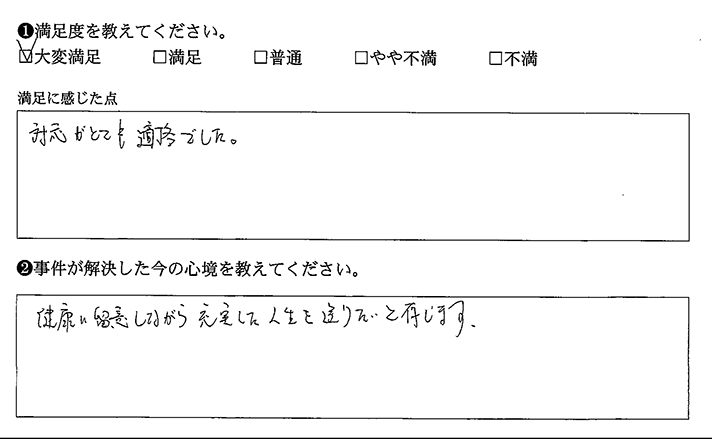 ❶満足度を教えてください。
☑大変満足 □満足 □普通 □やや不満 □不満
満足に感じた点
対応がとても適格でした。
❷事件が解決した今の心境を教えてください。
健康に留意しながら充実した人生を送りたいと存じます。